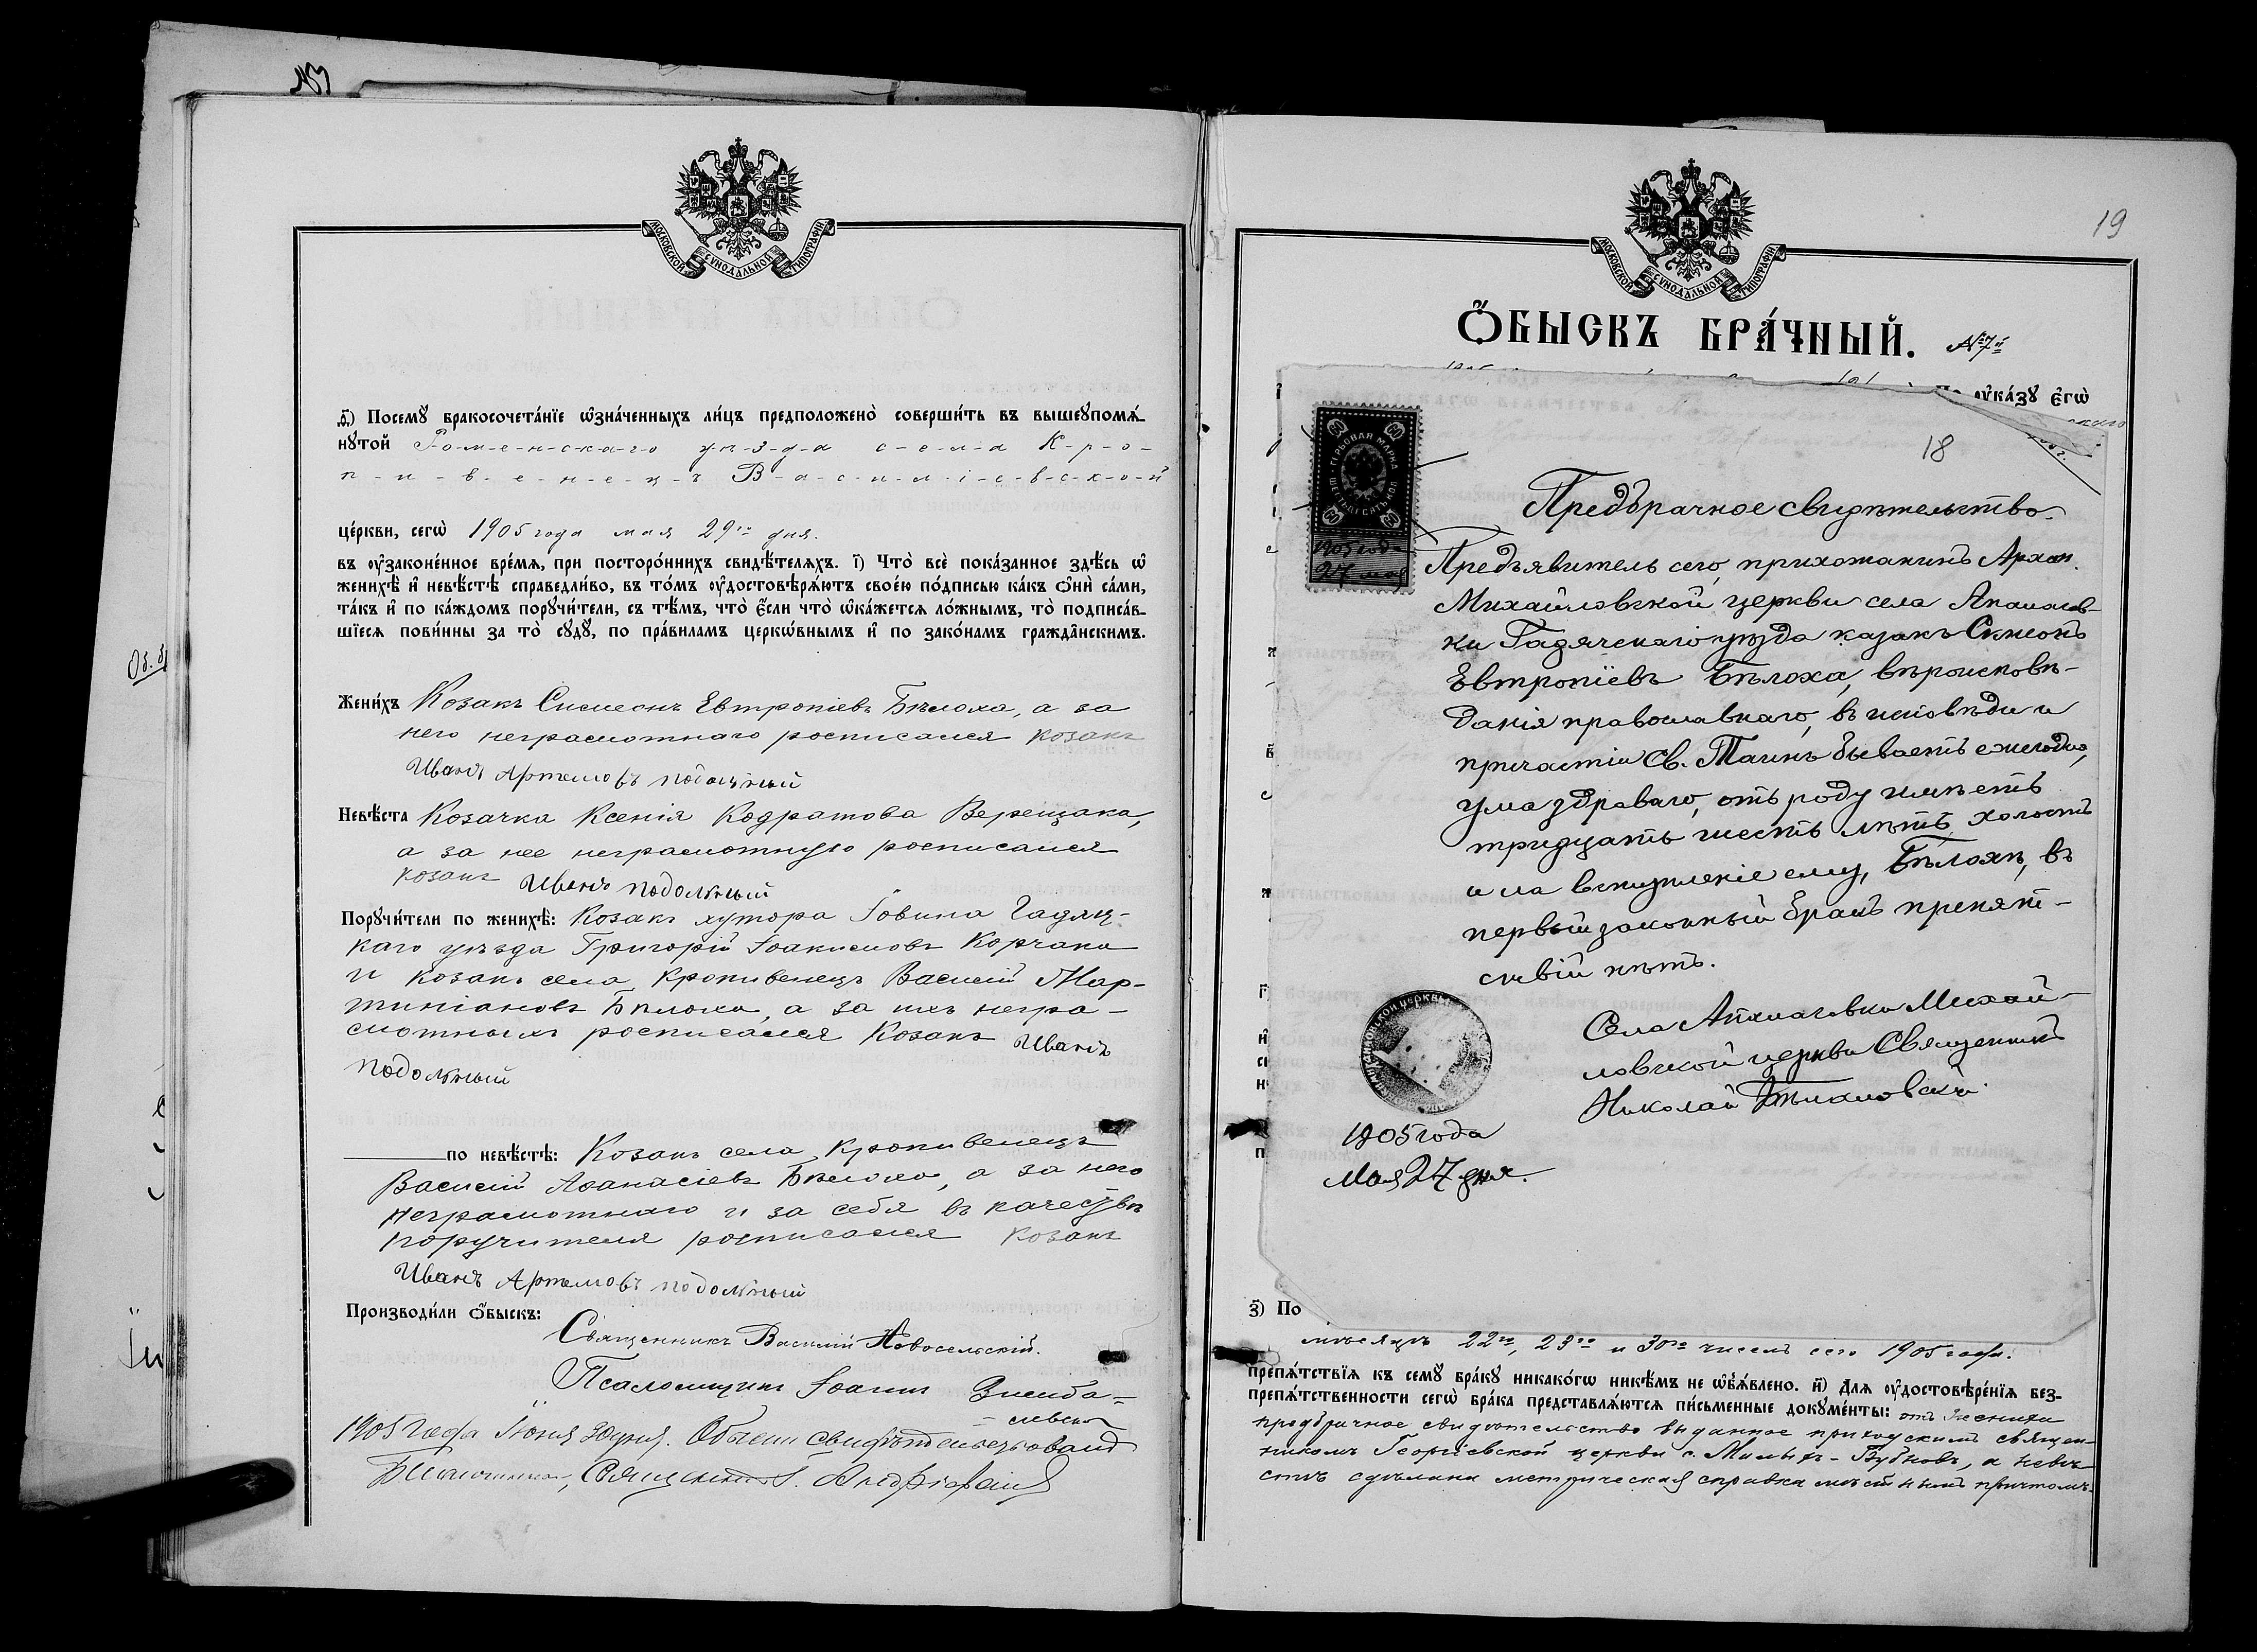 МОСКОВСКОЙ СѴНОДАЛЬНОЙ ТИПОГРАФІИ
Ѳ҃) Посемꙋ̀ бракосочета́нїе ѡ҆зна́ченныхъ ли́цъ предположено̀ соверши́ть въ вышеꙋпомѧ́-
нꙋтой Роменскаго уѣзда села Кро-
пивенецъ Василіевской
це́ркви, сегѡ̀ 1905 года мая 29го дня.
въ ᲂу҆зако́ненное вре́мѧ, при посторо́ннихъ свидѣ́телѧхъ. і҃) Что̀ всѐ пока́занное здѣ́сь ѡ҆
женихѣ̀ и҆ невѣ́стѣ справедли́во, въ то́мъ ᲂу҆достовѣрѧ́ютъ свое́ю по́дписью ка́къ ѻ҆нѝ са́ми,
та́къ и҆ по ка́ждомъ порꙋчи́тели, съ тѣ́мъ, что̀ є҆́сли что̀ ѡ҆ка́жетсѧ ло́жнымъ, то̀ подписа́в-
шїесѧ пови́нны за то̀ сꙋдꙋ̀, по пра́виламъ церкѡ́внымъ и҆ по зако́намъ гражда̑нскимъ.
Жени́хъ Козакъ Симеонъ Евтропіевъ Бѣлоха, а за
него неграмотнаго росписался козакъ
Иванъ Артемовъ подольный
Невѣ́ста Козачка Ксенія Кодратова Верещака,
а за нее неграмотную росписался
козакъ Иванъ подольный
Порꙋчи́тели по женихѣ̀: Козакъ хутора Іовина Гадяц-
каго уѣзда Григорій Іоакимовъ Корчака
и козакъ села Кропивенецъ Василій Мар-
тиніановъ Бѣлоха, а за ихъ негра-
мотныхъ росписался Козакъ Иванъ
подольный
по невѣ́стѣ: Козакъ села Кропивенецъ
Василій Аѳанасіевъ Бѣлоха, а за него
неграмотнаго и за себя въ качествѣ
поручителя росписался козакъ
Иванъ Артемовъ подольный
Производи́ли ѻ҆́быскъ:
Священникъ Василій Новосельскій.
Псаломщикъ Іоаннъ
1905 года Іюня 30 дня. Обыски свидѣтельствовалъ
Священникъ
19
МОСКОВСКОЙ СѴНОДАЛЬНОЙ ТИПОГРАФІИ
Ѻ҆́БЫСКЪ БРА́ЧНЫЙ. №7й
ᲂу҆ка́зꙋ є҆гѡ̀
18
ГЕРБОВАЯ МАРКА
ШЕСТЬДЕСЯТЪ КОП.
60 60 60 60
1905 года
27 мая
Предбрачное свидѣтельство.
Предъявитель сего, прихожанинъ Архан.
Михайловской церкви села Апанасов-
ки Гадячскаго уѣзда казакъ Симеонъ
Евтропіевъ Бѣлоха, вѣроисповѣ-
данія православнаго, въ исповѣди и
причастіи Св. Таинъ бываетъ ежегодно,
ума здраваго, отъ роду имѣетъ
тридцать шесть лѣтъ, холостъ
и на вступленіе ему, Бѣлохѣ, въ
первый законный бракъ препят-
ствій нѣтъ.
Села Апанасовки Михай-
ловской церкви Священникъ
Николай
1905 года
Мая 27 дня.
з҃) По
мѣсяцѣ 22го, 23го и 30го чиселъ сего 1905 года.
препѧ́тствїѧ къ семꙋ̀ бра́кꙋ никако́гѡ никѣ́мъ не ѡ҆б̾ѧ́влено. и҃) Длѧ̀ ᲂу҆достовѣре́нїѧ без-
препѧ́тственности сегѡ̀ бра́ка представлѧ́ютсѧ пи́сьменные докꙋме́нты: отъ жениха
предбрачное свидѣтельство выданное приходскимъ священ-
никомъ Георгіевской церкви с. Малыхъ-Бубновъ, а невѣ-
стѣ сдѣлана метрическая справка мѣстнымъ причтомъ.